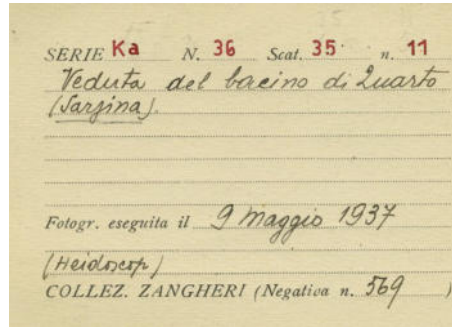 SERIE Ka N. 36 Scat. 35 n. 11
Veduta del bacino di Quarto
(Sarsina).
Fotogr. eseguita il 9 Maggio 1937
(Heidoscop)
COLLEZ. ZANGHERI (Negativa n. 569 )